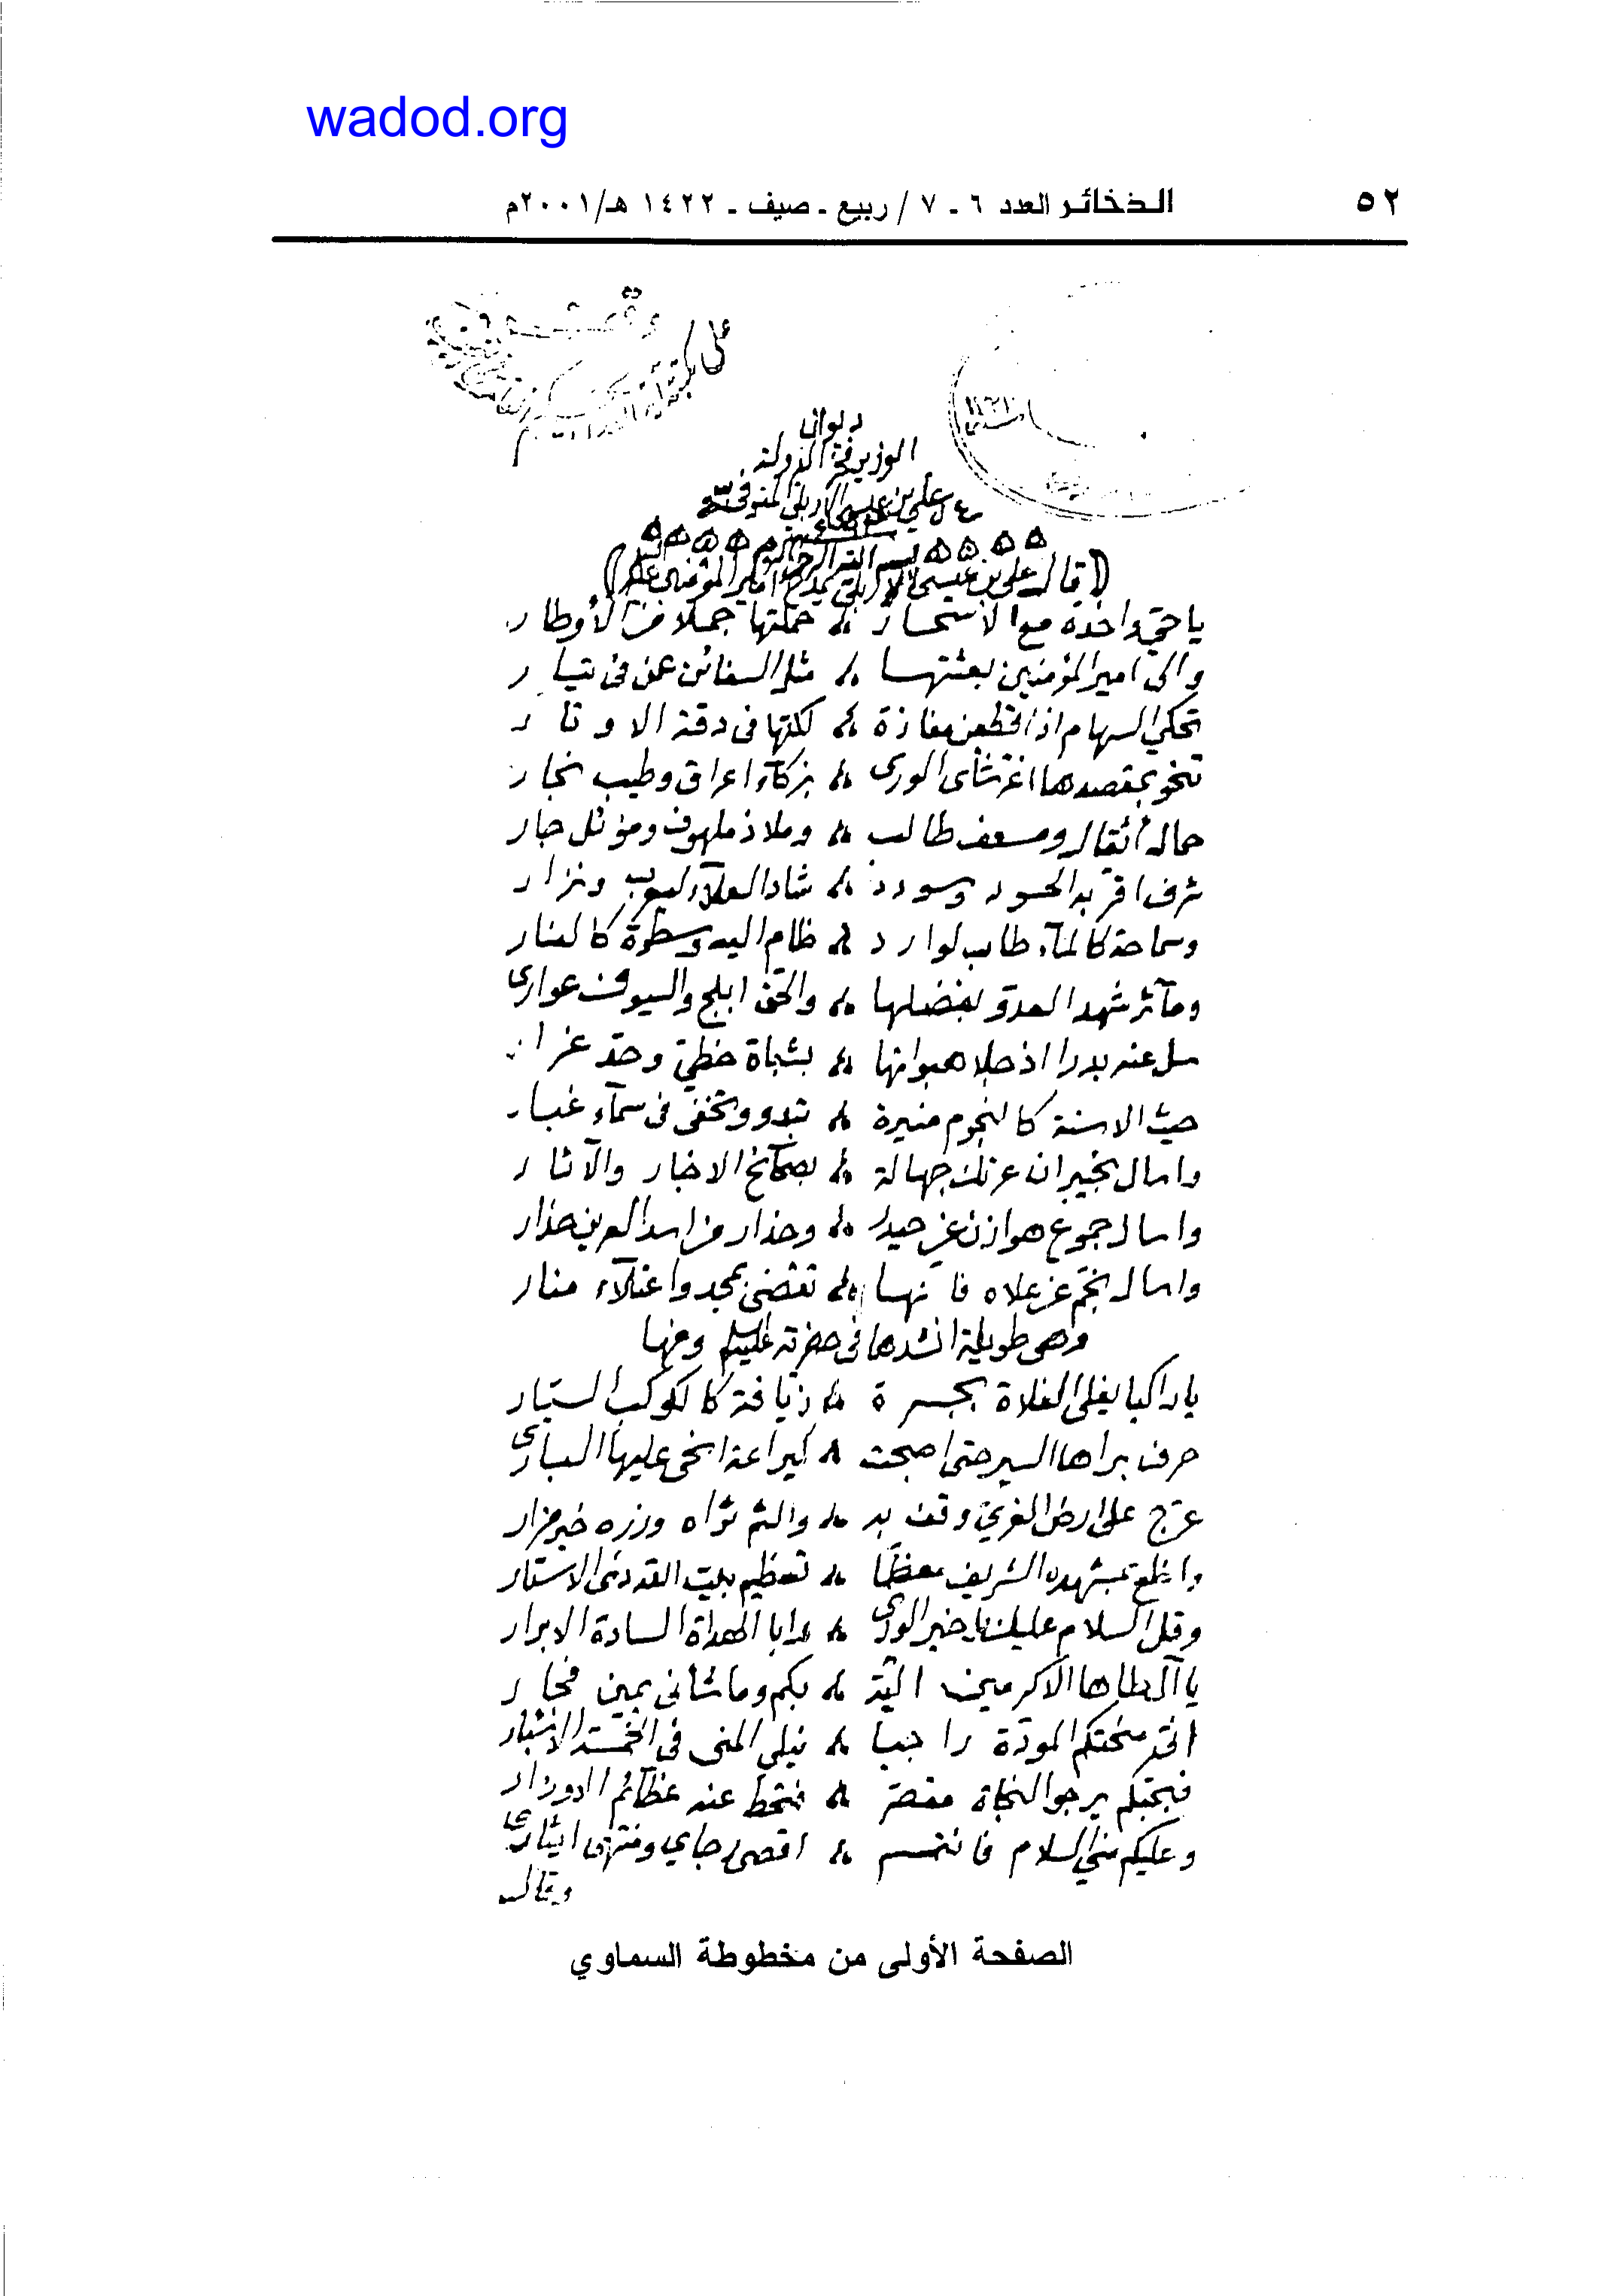 wadod.org
٥٢
الذخائر العدد ٦ ـ ٧ / ربيع ـ صيف ـ ١٤٢٢ هـ/٢٠٠١م
ديوان
الوزير فخر الدولة
علي بن عيسى الاربلي المتوفى
بسم الله الرحمن الرحيم
(قال علي بن عيسى الاربلي يمدح امير المؤمنين)
مع الاسحار حملتها جملا من الأوطار
والى امير المؤمنين بعثتها مثل السفائن عمن فى تيار
تحكي السهام اذا قطعن مفازة لكنها فى دقة الاوتار
تنحو بمقصدها اغر شأى الورى بزكآء اعراق وطيب نجار
حمال أثقال ومسعف طالب وملاذ ملهوف وموئل جار
شرف اقر به الحسود وسودد شاد العلآء ليعرب ونزار
وسماحة كالمآء طاب لوارد ظام اليه وسطوة كالنار
ومآثر شهد العدو بفضلها والحق ابلج والسيوف عوارى
سل عنه بدرا اذ جلا هبواتها بشباة خطي وحد غرار
حيث الاسنة كالنجوم منيرة تبدو وتخفى فى سمآء غبار
واسال بخيبر ان عرتك جهالة بصحآئح الاخبار والآثار
واسال جموع هوازن عن حيدر وحذار من اسد العرين حذار
واسال بخم عن علاه فانها تقضى بمجد واعتلآء منار
وهى طويلة انشدها فى حضرته ومنها
يا راكبا يفلى الفلاة بجسرة زيافة كالكوكب السيار
حرف براها السير حتى اصبحت كيراعة انحى عليها البارى
عرج على ارض الغري وقف به والثم ثراه وزره خير مزار
واخلع بمشهده الشريف معظما تعظيم بيت الله ذى الاستار
وقل السلام عليك يا خير الورى وابا الهداة السادة الابرار
يا آل طاها الاكرمين الية بكم وما شانى يمين فجار
انى منحتكم المودة راجيا نيلي المنى فى الخمسة الاشبار
فبحبكم يرجو النجاة مقصر فتحط عنه عظآئم الاوزار
وعليكم مني السلام فانتم اقصى رجاي ومنتهى ايثارى
وقال
الصفحة الأولى من مخطوطة السماوي